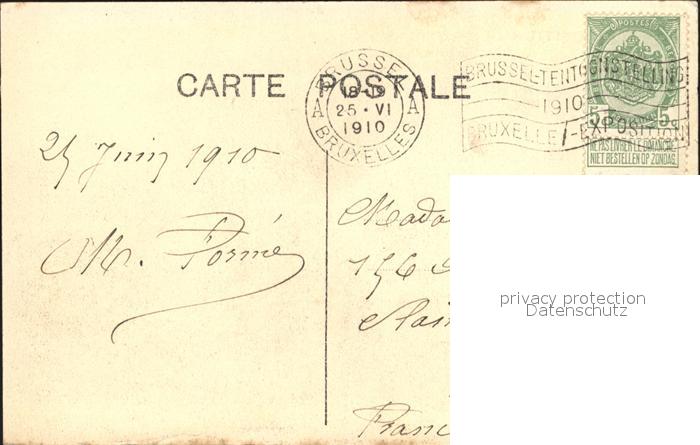 CARTE POSTALE
BRUSSEL
18-19
A 25·VI A
1910
BRUXELLES
BRUSSEL-TENTOONSTELLING
1910
BRUXELLES-EXPOSITION
POSTES
5c 5c
NE PAS LIVRER LE DIMANCHE
NIET BESTELLEN OP ZONDAG
25 Juin 1910
M.
Mada
156
Franc
privacy protection
Datenschutz